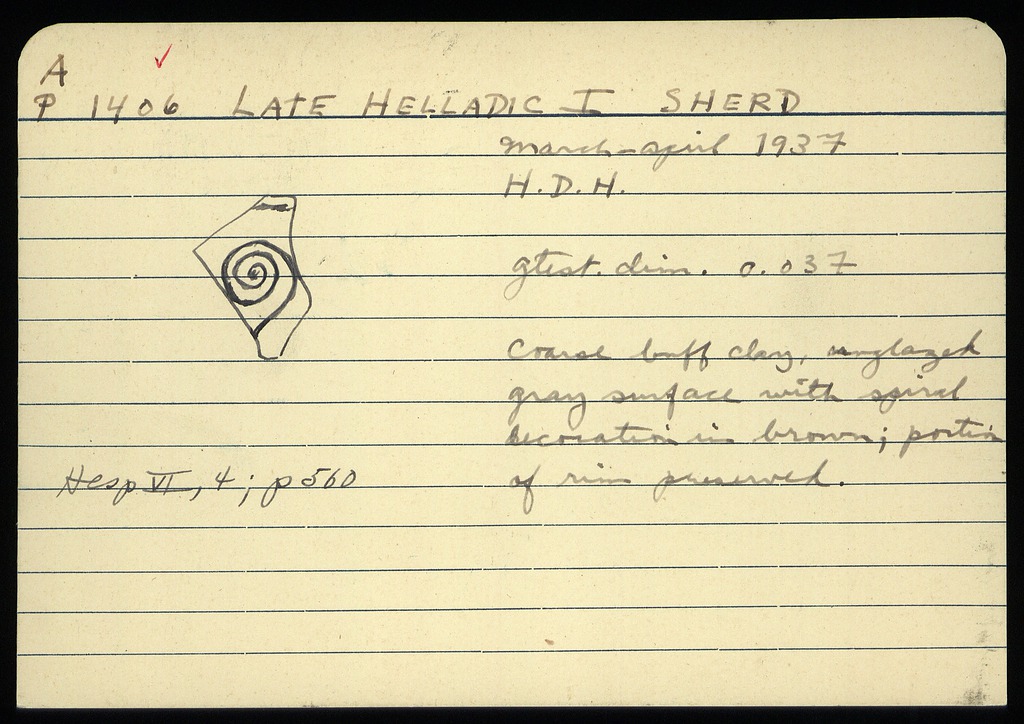 A
P 1406 LATE HELLADIC I SHERD
March-April 1937
H.D.H.
gtest. dim. 0.037
Coarse buff clay, unglazed
gray surface with spiral
decoration in brown; portion
of rim preserved.
Hesp VI, 4; p 560